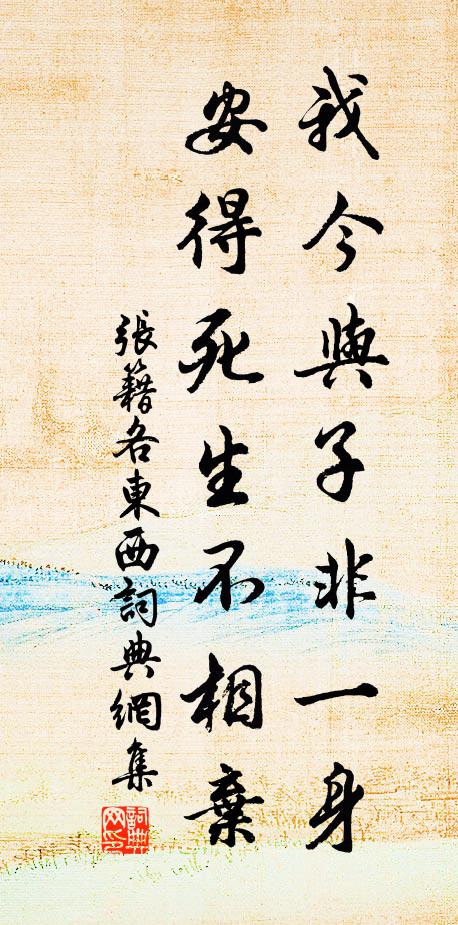 我今與子非一身
安得死生不相棄
張籍各東西詞典網集
詞典網印